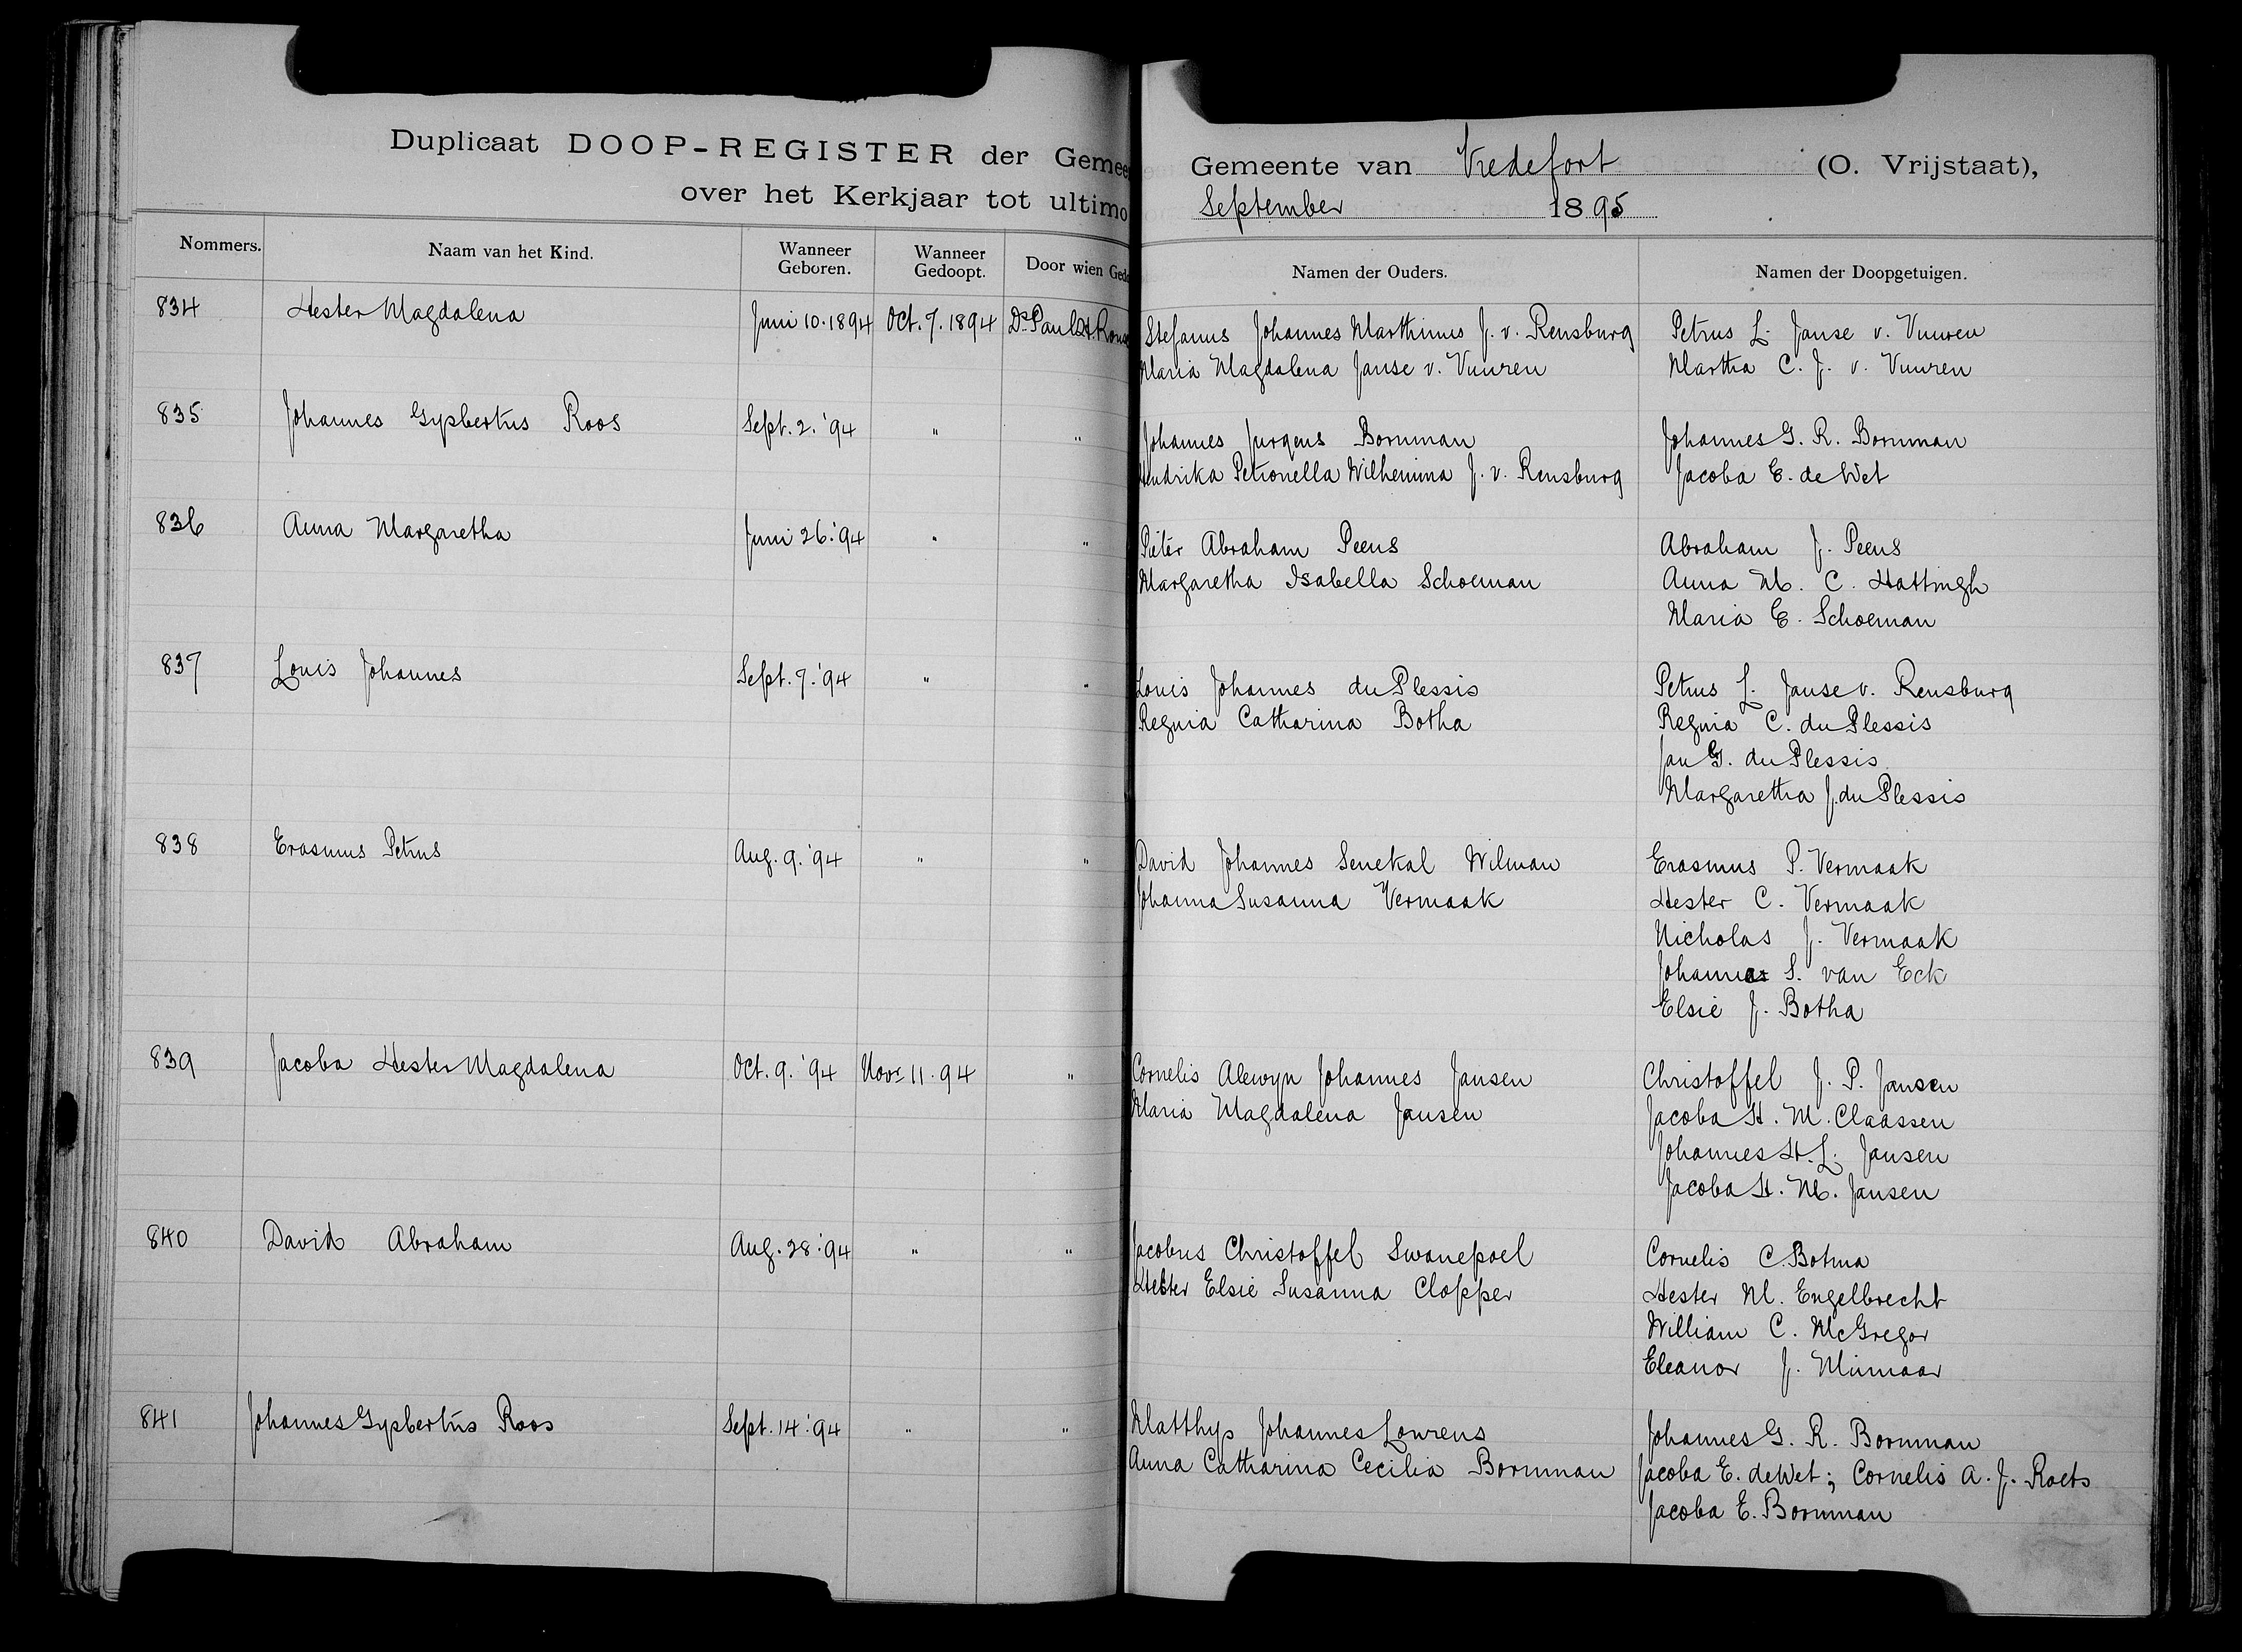 Duplicaat DOOP-REGISTER der Gemee
over het Kerkjaar tot ultimo
Gemeente van Vredefort (O. Vrijstaat),
September 1895
Nommers. Naam van het Kind. Wanneer Geboren. Wanneer Gedoopt. Door wien Gedo Namen der Ouders. Namen der Doopgetuigen.
834 Hester Magdalena Juni 10. 1894 Oct. 7. 1894 Ds. Paul H. Stefanus Johannes Marthinus J. v. Rensburg Petrus L. Janse v. Vuuren
Maria Magdalena Janse v. Vuuren Martha C. J. v. Vuuren
835 Johannes Gysbertus Roos Sept. 2. '94 " " Johannes Jurgens Bornman Johannes G. R. Bornman
Hendrika Petronella Wilhemina J. v. Rensburg Jacoba E. de Wet
836 Anna Margaretha Juni 26. '94 " " Pieter Abraham Peens Abraham J. Peens
Margaretha Isabella Schoeman Anna M. C. Hattingh
Maria E. Schoeman
837 Louis Johannes Sept. 7. '94 " " Louis Johannes du Plessis Petrus L. Janse v. Rensburg
Regina Catharina Botha Regina C. du Plessis
Jan G. du Plessis
Margaretha J. du Plessis
838 Erasmus Petrus Aug. 9. '94 " " David Johannes Senekal Wilman Erasmus P. Vermaak
Johanna Susanna Vermaak Hester C. Vermaak
Nicholas J. Vermaak
S. van Eck
Elsie J. Botha
839 Jacoba Hester Magdalena Oct. 9. '94 Novr 11. 94 " Cornelis Alewyn Johannes Jansen Christoffel J. P. Jansen
Maria Magdalena Jansen Jacoba H. M. Claassen
Johannes H. L. Jansen
Jacoba H. M. Jansen
840 David Abraham Aug. 28. '94 " " Jacobus Christoffel Swanepoel Cornelis C. Botma
Hester Elsie Susanna Clopper Hester M. Engelbrecht
William C. McGregor
Eleanor J. Minnaar
841 Johannes Gysbertus Roos Sept. 14. '94 " " Matthys Johannes Lourens Johannes G. R. Bornman
Anna Catharina Cecilia Bornman Jacoba E. de Wet; Cornelis A. J. Roets
Jacoba E. Bornman